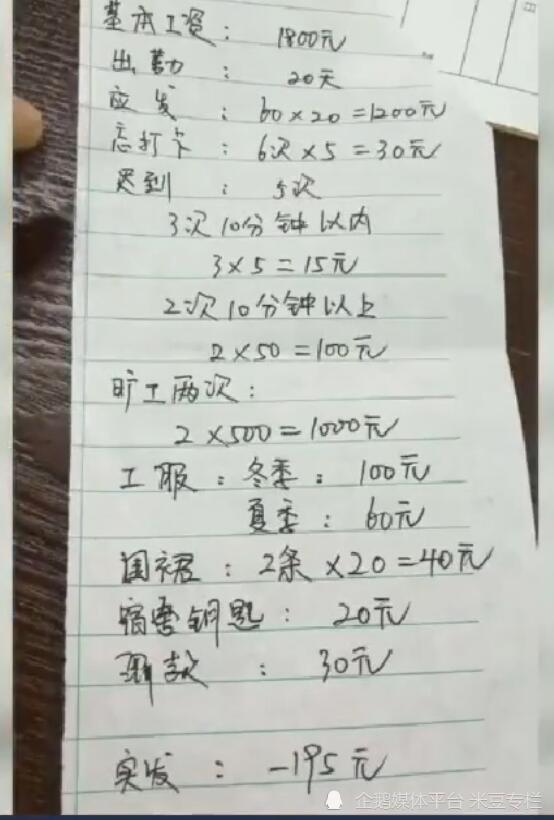 基本工资：1800元
出勤：20天
应发：60×20=1200元
忘打卡：6次×5=30元
迟到：5次
3次10分钟以内
3×5=15元
2次10分钟以上
2×50=100元
旷工两次：
2×500=1000元
工服：冬季：100元
夏季：60元
围裙：2条×20=40元
宿舍钥匙：20元
款：30元
实发：-195元
企鹅媒体平台 米豆专栏